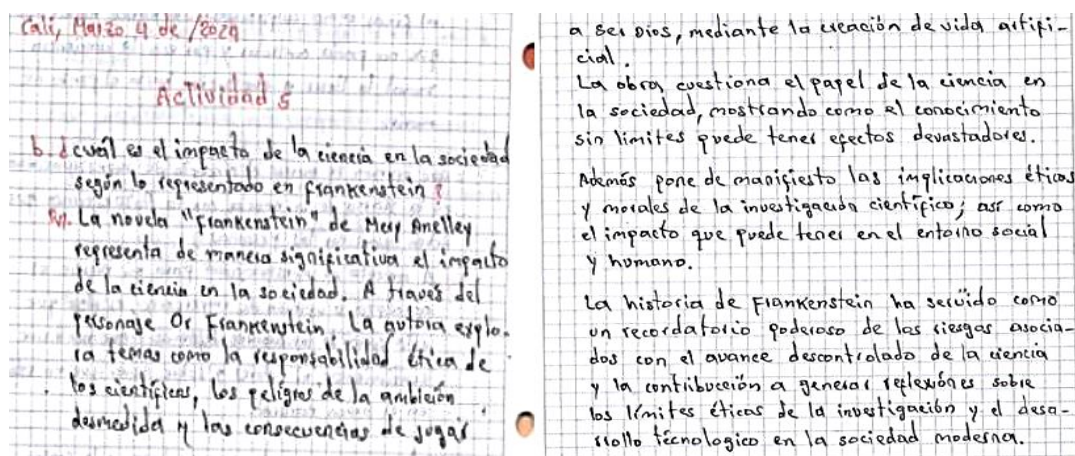 Cali, Marzo 4 de /2024
Actividad 5
b. ¿cuál es el impacto de la ciencia en la sociedad
según lo representado en frankenstein?
R/. La novela "frankenstein" de Mery Anelley
representa de manera significativa el impacto
de la ciencia en la sociedad. A través del
personaje Dr Frankenstein, La autora explo-
ra temas como la responsabilidad ética de
los científicos, los peligros de la ambición
desmedida y las consecuencias de jugar
a ser Dios, mediante la creación de vida artifi-
cial.
La obra, cuestiona el papel de la ciencia en
la sociedad, mostrando como el conocimiento
sin límites puede tener efectos devastadores.
Además pone de manifiesto las implicaciones éticas
y morales de la investigación científico; así como
el impacto que puede tener en el entorno social
y humano.
La historia de Frankenstein ha servido como
un recordatorio poderoso de los riesgos asocia-
dos con el avance descontrolado de la ciencia
y la contribuceión a generar reflexiónes sobre
los límites éticas de la investigación y el desa-
rrollo técnologico en la sociedad moderna.